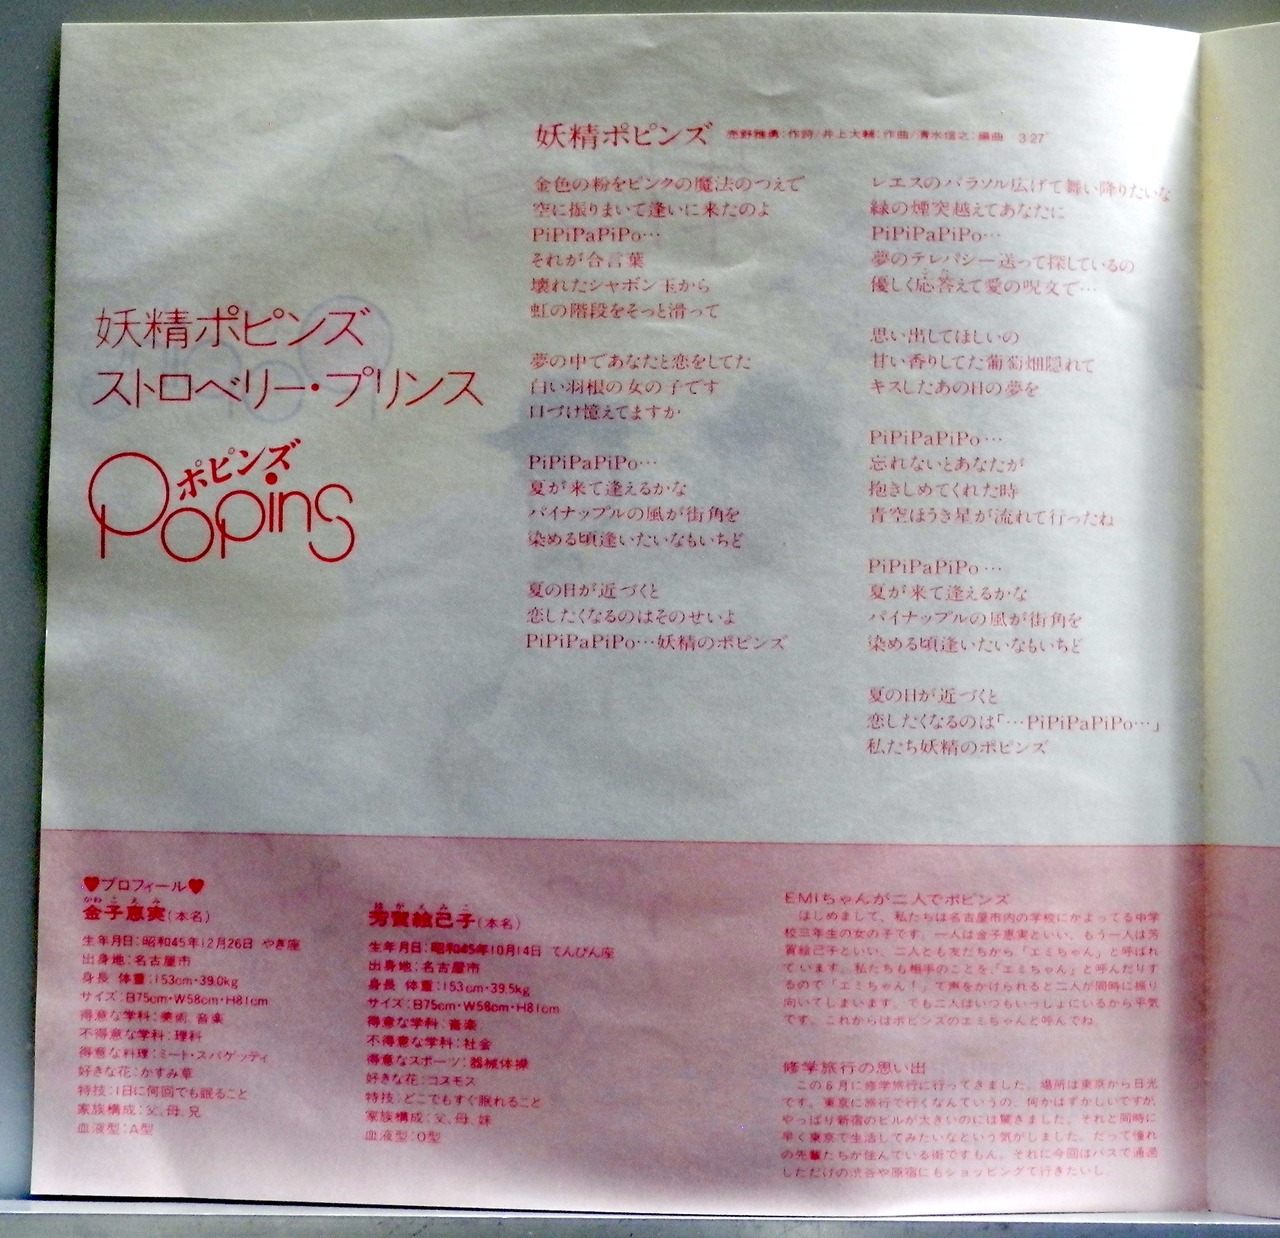 妖精ポピンズ
ストロベリー・プリンス
ポピンズ
Popins
妖精ポピンズ 売野雅勇:作詩/井上大輔:作曲/清水信之:編曲 3'27"
金色の粉をピンクの魔法のつえで
空に振りまいて逢いに来たのよ
PiPiPaPiPo…
それが合言葉
壊れたシャボン玉から
虹の階段をそっと滑って
夢の中であなたと恋をしてた
白い羽根の女の子です
口づけ憶えてますか
PiPiPaPiPo…
夏が来て逢えるかな
パイナップルの風が街角を
染める頃逢いたいなもいちど
夏の日が近づくと
恋したくなるのはそのせいよ
PiPiPaPiPo…妖精のポピンズ
レエスのパラソル広げて舞い降りたいな
緑の煙突越えてあなたに
PiPiPaPiPo…
夢のテレパシー送って探しているの
優しく応答えて愛の呪文で…
思い出してほしいの
甘い香りしてた葡萄畑隠れて
キスしたあの日の夢を
PiPiPaPiPo…
忘れないとあなたが
抱きしめてくれた時
青空ほうき星が流れて行ったね
PiPiPaPiPo…
夏が来て逢えるかな
パイナップルの風が街角を
染める頃逢いたいなもいちど
夏の日が近づくと
恋したくなるのは「…PiPiPaPiPo…」
私たち妖精のポピンズ
♥プロフィール♥
かねこえみ
金子恵実(本名)
生年月日:昭和45年12月26日 やぎ座
出身地:名古屋市
身長 体重:153cm・39.0kg
サイズ:B75cm・W58cm・H81cm
得意な学科:美術、音楽
不得意な学科:理科
得意な料理:ミート・スパゲッティ
好きな花:かすみ草
特技:1日に何回でも眠ること
家族構成:父、母、兄
血液型:A型
はがえみこ
芳賀絵己子(本名)
生年月日:昭和45年10月14日 てんびん座
出身地:名古屋市
身長 体重:153cm・39.5kg
サイズ:B75cm・W58cm・H81cm
得意な学科:音楽
不得意な学科:社会
得意なスポーツ:器械体操
好きな花:コスモス
特技:どこでもすぐ眠れること
家族構成:父、母、妹
血液型:O型
EMIちゃんが二人でポピンズ
はじめまして、私たちは名古屋市内の学校にかよってる中学
校三年生の女の子です。一人は金子恵実といい、もう一人は芳
賀絵己子といい、二人とも友だちから「エミちゃん」と呼ばれ
ています。私たちも相手のことを「エミちゃん」と呼んだりす
るので「エミちゃん!」て声をかけられると二人が同時に振り
向いてしまいます。でも二人はいつもいっしょにいるから平気
です。これからはポピンズのエミちゃんと呼んでね。
修学旅行の思い出
この6月に修学旅行に行ってきました。場所は東京から日光
です。東京に旅行で行くなんていうの、何かはずかしいですが、
やっぱり新宿のビルが大きいのには驚きました。それと同時に
早く東京で生活してみたいなという気がしました。だって憧れ
の先輩たちが住んでいる街ですもん。それに今回はバスで通過
しただけの渋谷や原宿にもショッピングで行きたいし。